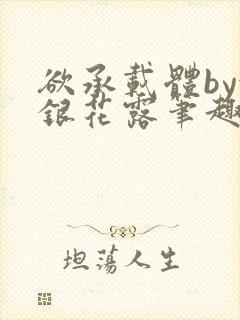 欲承載體by
銀花露筆趣
坦蕩人生